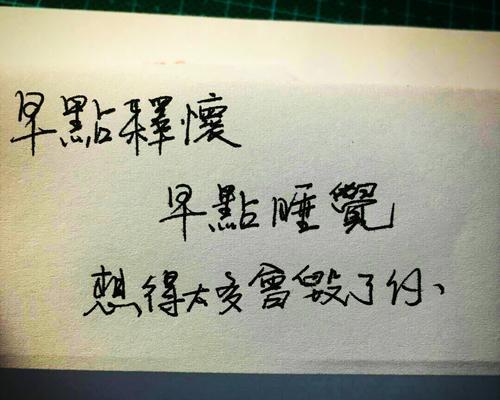 早點釋懷
早點睡覺
想得太多會毀了你、